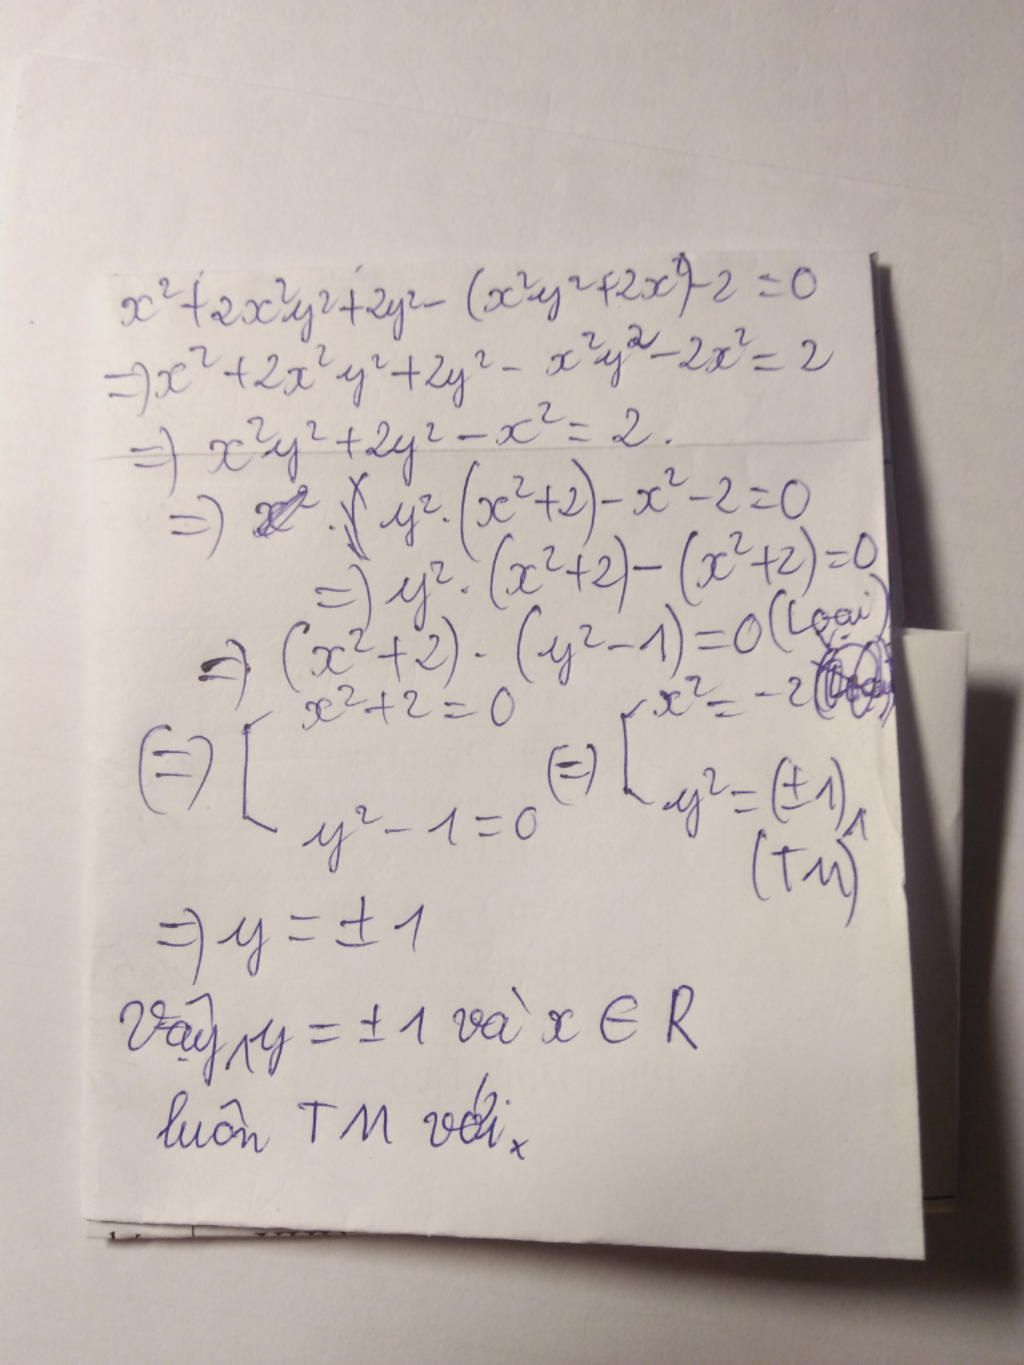 x² + 2x²y² + 2y² - (x²y² + 2x²) - 2 = 0
=> x² + 2x²y² + 2y² - x²y² - 2x² = 2
=> x²y² + 2y² - x² = 2.
=> y².(x²+2) - x² - 2 = 0
=> y².(x²+2) - (x²+2) = 0
=> (x²+2).(y²-1) = 0 (Loại)
(=) [ x²+2 = 0 (=) [ x² = -2
y² - 1 = 0 y² = (±1)
(TM)
=> y = ±1
Vậy, y = ±1 và x ∈ R
luôn TM với x